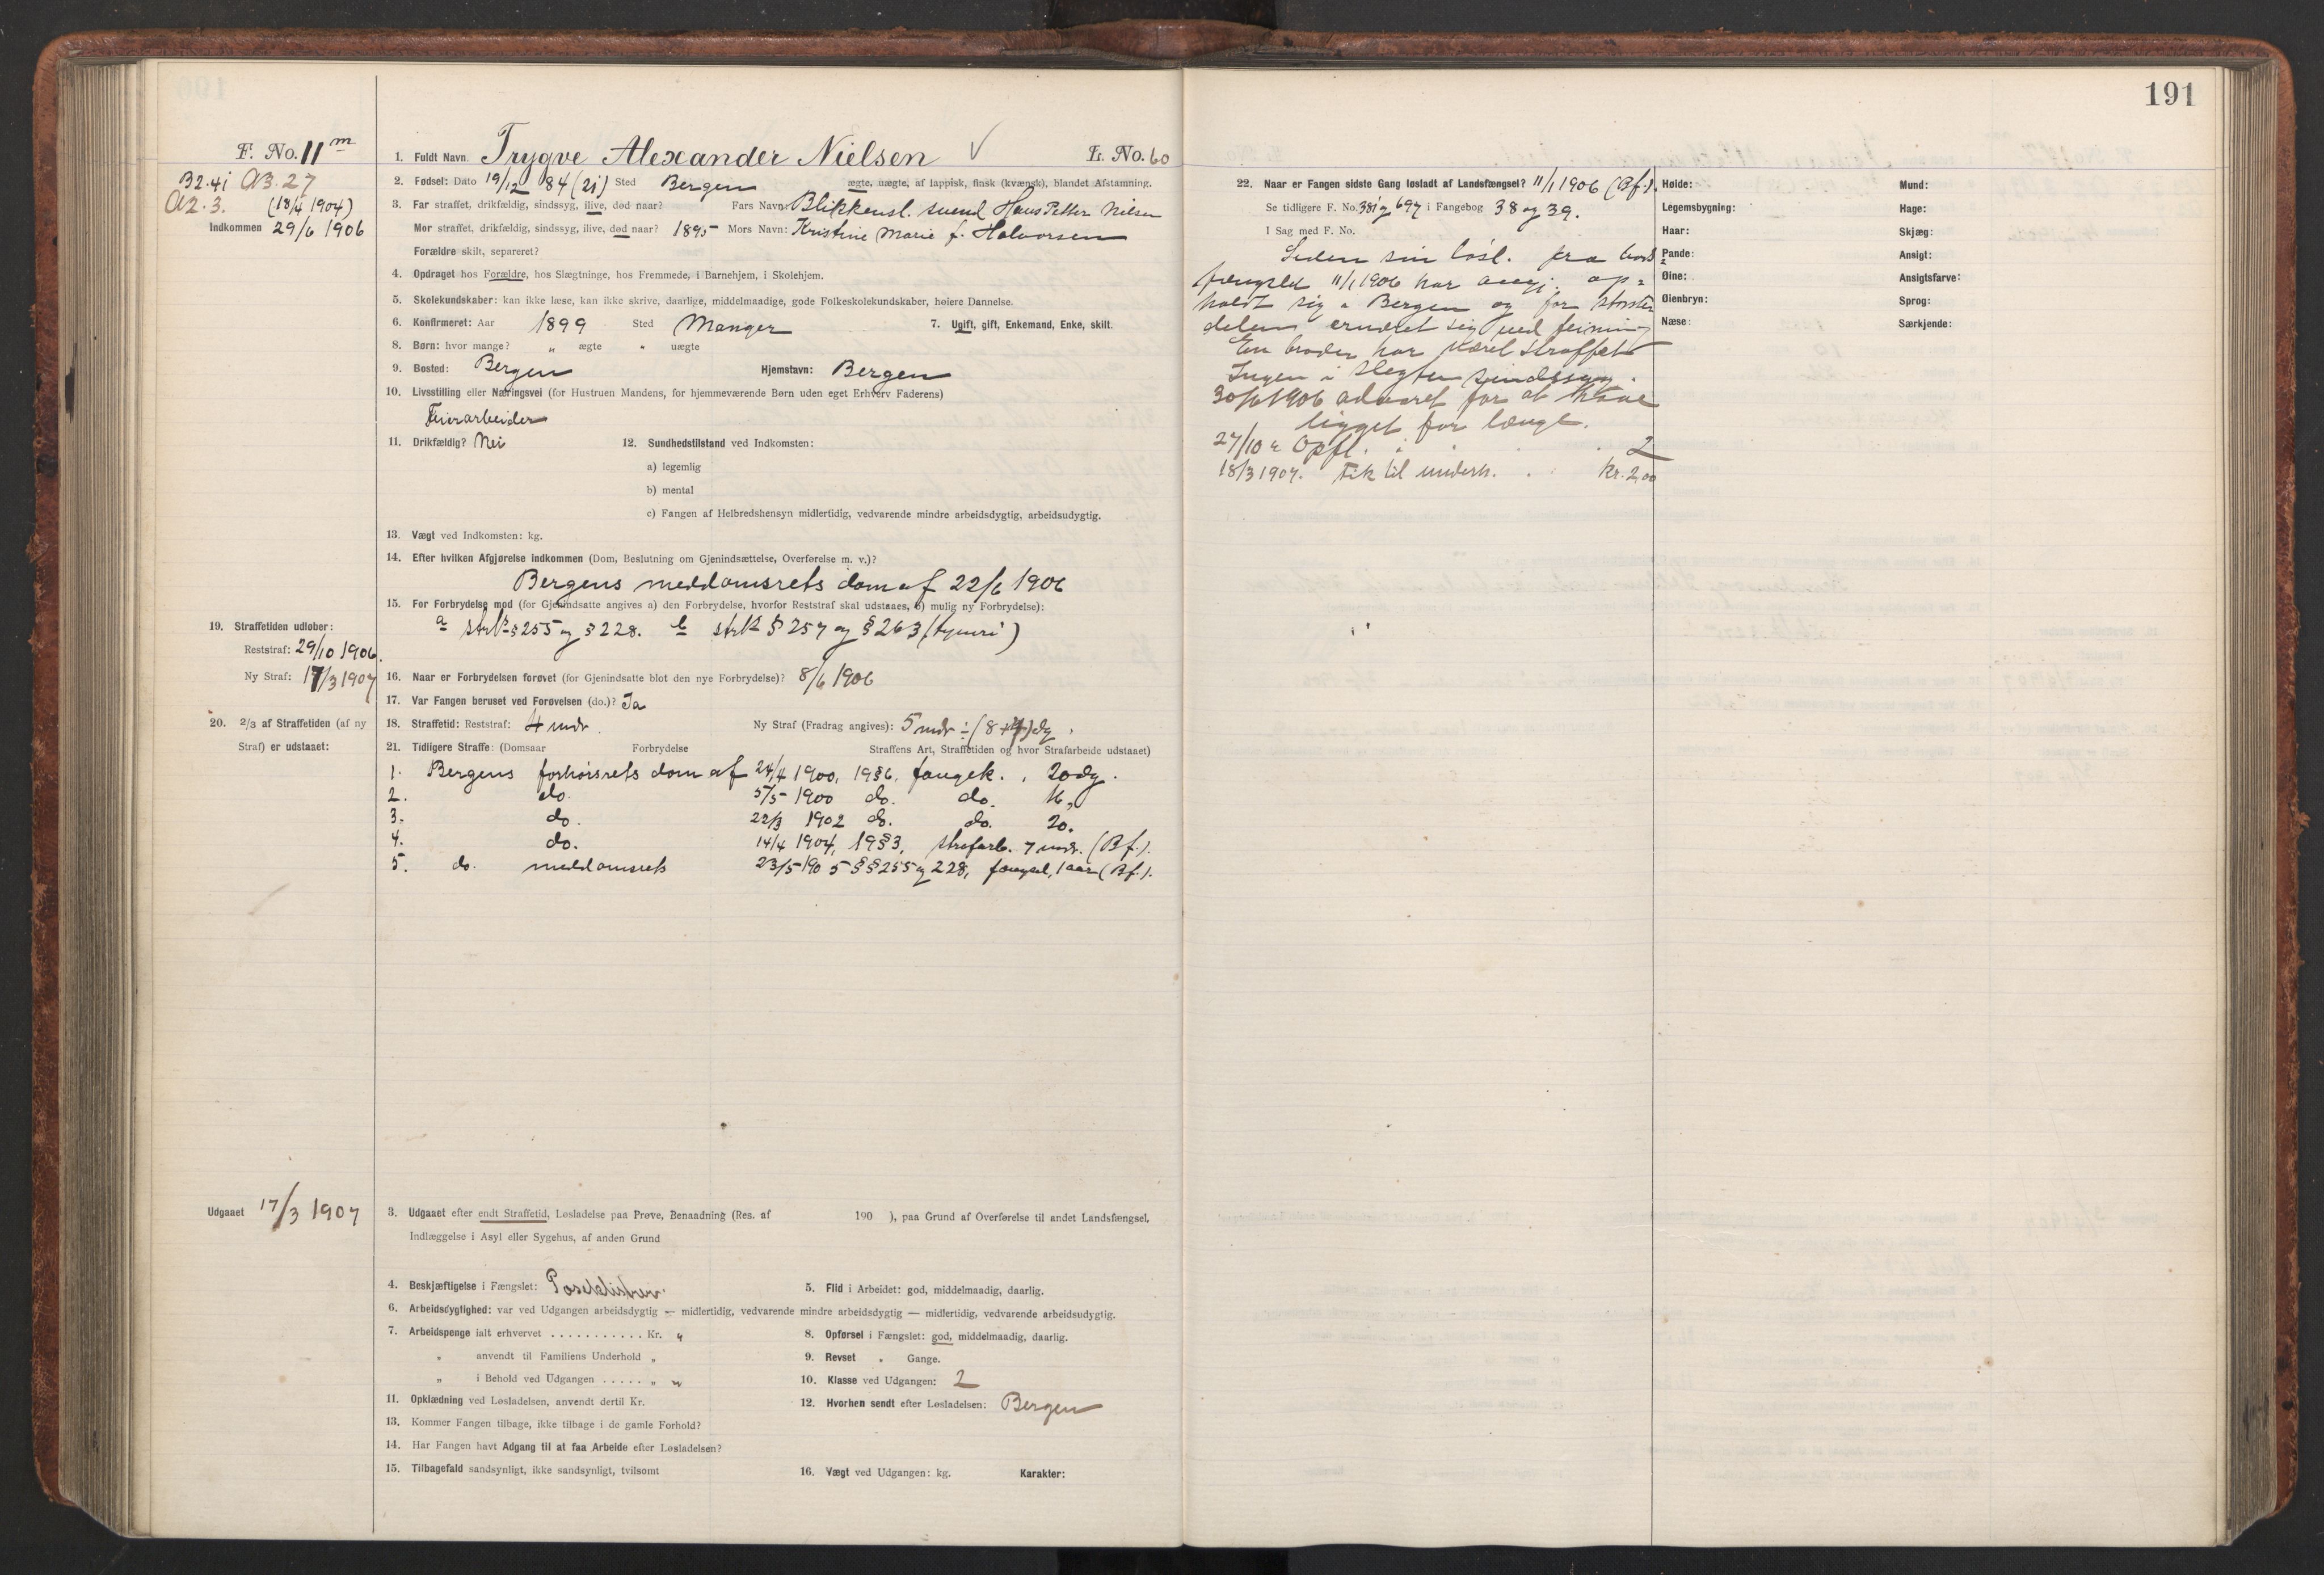 191
F. No. 11 m
B2.41 AB.27
A2.3. (18/4 1904)
Indkommen 29/6 1906
1. Fuldt Navn. Trygve Alexander Nielsen L. No. 60
2. Fødsel: Dato 19/12 84 (21) Sted Bergen ægte, uægte, af lappisk, finsk (kvænsk), blandet Afstamning.
3. Far straffet, drikfældig, sindssyg, ilive, død naar? Fars Navn: Blikkensl. svend Hans Petter Nilsen
Mor straffet, drikfældig, sindssyg, ilive, død naar? 1895 Mors Navn: Kristine Marie f. Halvorsen
Forældre skilt, separeret?
4. Opdraget hos Forældre, hos Slægtninge, hos Fremmede, i Barnehjem, i Skolehjem.
5. Skolekundskaber: kan ikke læse, kan ikke skrive, daarlige, middelmaadige, gode Folkeskolekundskaber, høiere Dannelse.
6. Konfirmeret: Aar 1899 Sted Manger 7. Ugift, gift, Enkemand, Enke, skilt.
8. Børn: hvor mange? „ ægte „ uægte
9. Bosted: Bergen Hjemstavn: Bergen
10. Livsstilling eller Næringsvei (for Hustruen Mandens, for hjemmeværende Børn uden eget Erhverv Faderens)
Feierarbeider
11. Drikfældig? Nei 12. Sundhedstilstand ved Indkomsten:
a) legemlig
b) mental
c) Fangen af Helbredshensyn midlertidig, vedvarende mindre arbeidsdygtig, arbeidsudygtig.
13. Vægt ved Indkomsten: kg.
14. Efter hvilken Afgjørelse indkommen (Dom, Beslutning om Gjenindsættelse, Overførelse m. v.)?
Bergens meddomsrets dom af 22/6 1906
15. For Forbrydelse mod (for Gjenindsatte angives a) den Forbrydelse, hvorfor Reststraf skal udstaaes, b) mulig ny Forbrydelse):
a strl § 255 og § 228. b strl § 257 og § 263 (tyveri)
19. Straffetiden udløber:
Reststraf: 29/10 1906.
Ny Straf: 17/3 1907
16. Naar er Forbrydelsen forøvet (for Gjenindsatte blot den nye Forbrydelse)? 8/6 1906
17. Var Fangen beruset ved Forøvelsen (do.)? Ja
20. 2/3 af Straffetiden (af ny
Straf) er udstaaet:
18. Straffetid: Reststraf: 4 mdr. Ny Straf (Fradrag angives): 5 mdr ÷ (8 + ) dg.
21. Tidligere Straffe: (Domsaar Forbrydelse Straffens Art, Straffetiden og hvor Strafarbeide udstaaet)
1. Bergens forhørsrets dom af 24/4 1900, 19 § 6, fængsk., 20 dg.
2. do. 5/5 1900 do. do. 16 „
3. do. 22/3 1902 do. do. 20.
4. do. 14/4 1904, 19 § 3, strafarb. 7 mdr. (Bf.).
5. do. meddomsrets 23/5 1905 §§ 255 og 228, fængsel, 1 aar (Bf.).
Udgaaet 17/3 1907
3. Udgaaet efter endt Straffetid, Løsladelse paa Prøve, Benaadning (Res. af 190 ), paa Grund af Overførelse til andet Landsfængsel,
Indlæggelse i Asyl eller Sygehus, af anden Grund
4. Beskjæftigelse i Fængslet: Poseklistrer. 5. Flid i Arbeidet: god, middelmaadig, daarlig.
6. Arbeidsdygtighed: var ved Udgangen arbeidsdygtig — midlertidig, vedvarende mindre arbeidsdygtig — midlertidig, vedvarende arbeidsudygtig.
7. Arbeidspenge ialt erhvervet . . . . . . . . . . . Kr. „ 8. Opførsel i Fængslet: god, middelmaadig, daarlig.
„ anvendt til Familiens Underhold „ 9. Revset „ Gange.
„ i Behold ved Udgangen . . . . . „ „ 10. Klasse ved Udgangen: 2
11. Opklædning ved Løsladelsen, anvendt dertil Kr. 12. Hvorhen sendt efter Løsladelsen: Bergen
13. Kommer Fangen tilbage, ikke tilbage i de gamle Forhold?
14. Har Fangen havt Adgang til at faa Arbeide efter Løsladelsen?
15. Tilbagefald sandsynligt, ikke sandsynligt, tvilsomt 16. Vægt ved Udgangen: kg. Karakter:
22. Naar er Fangen sidste Gang løsladt af Landsfængsel? 11/1 1906 (Bf.).
Se tidligere F. No. 381 og 697 i Fangebog 38 og 39.
I Sag med F. No.
Siden sin løsl. fra bods
fængslet 11/1 1906 har angj. op=
holdt sig i Bergen og for største
delen ernæret sig ved feining
En broder har været straffet
Ingen i slegten sindssyg.
30/6 1906 advaret for at have
ligget for længe.
27/10 " Opfl. . . 2
18/3 1907. Fik til undersk. . . Kr. 2,00
Høide: Mund:
Legemsbygning: Hage:
Haar: Skjæg:
Pande: Ansigt:
Øine: Ansigtsfarve:
Øienbryn: Sprog:
Næse: Særkjende: